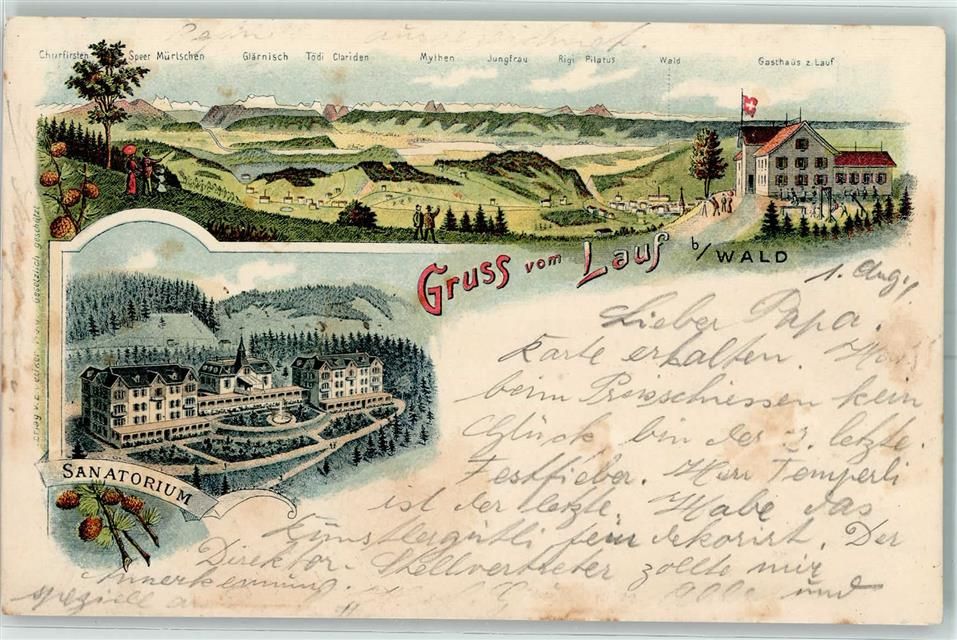 Churfirsten Speer Mürtschen Glärnisch Tödi Clariden Mythen Jungfrau Rigi Pilatus Wald Gasthaus z. Lauf
Gruss vom Lauf b/WALD
SANATORIUM
1. Aug.
Lieber Papa.
Karte erhalten.
beim Preisschiessen kein
Glück bin der 3. letzte.
Festfieber. Herr Temperli
ist der letzte. Habe das
Künstlergütli fein dekorirt. Der
Direktor-Stellvertreter zollte mir
Annerkennung
speziell
Alle und